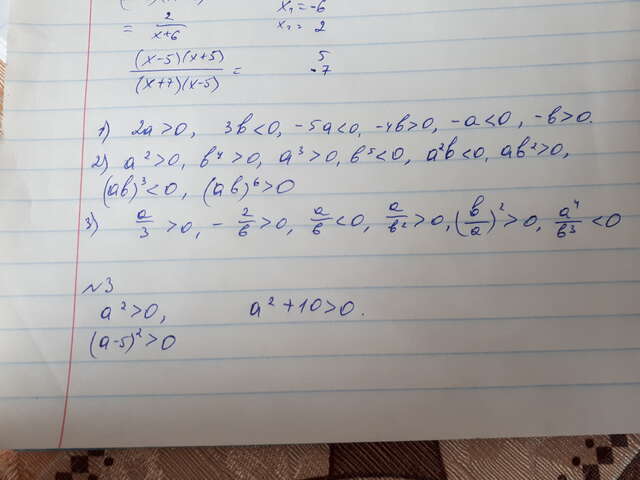 = 2/(x+6) x₁ = -6
x₁ = 2
(x-5)(x+5)/(x+7)(x-5) = 5
-7
1) 2a>0, 3b<0, -5a<0, -4b>0, -a<0, -b>0.
2) a²>0, b⁴>0, a³>0, b⁵<0, a²b<0, ab²>0,
(ab)³<0, (ab)⁶>0
3) a/3>0, -2/b>0, a/b<0, a/b²>0, (b/a)²>0, a⁴/b³<0
№3
a²>0, a²+10>0.
(a-5)²>0